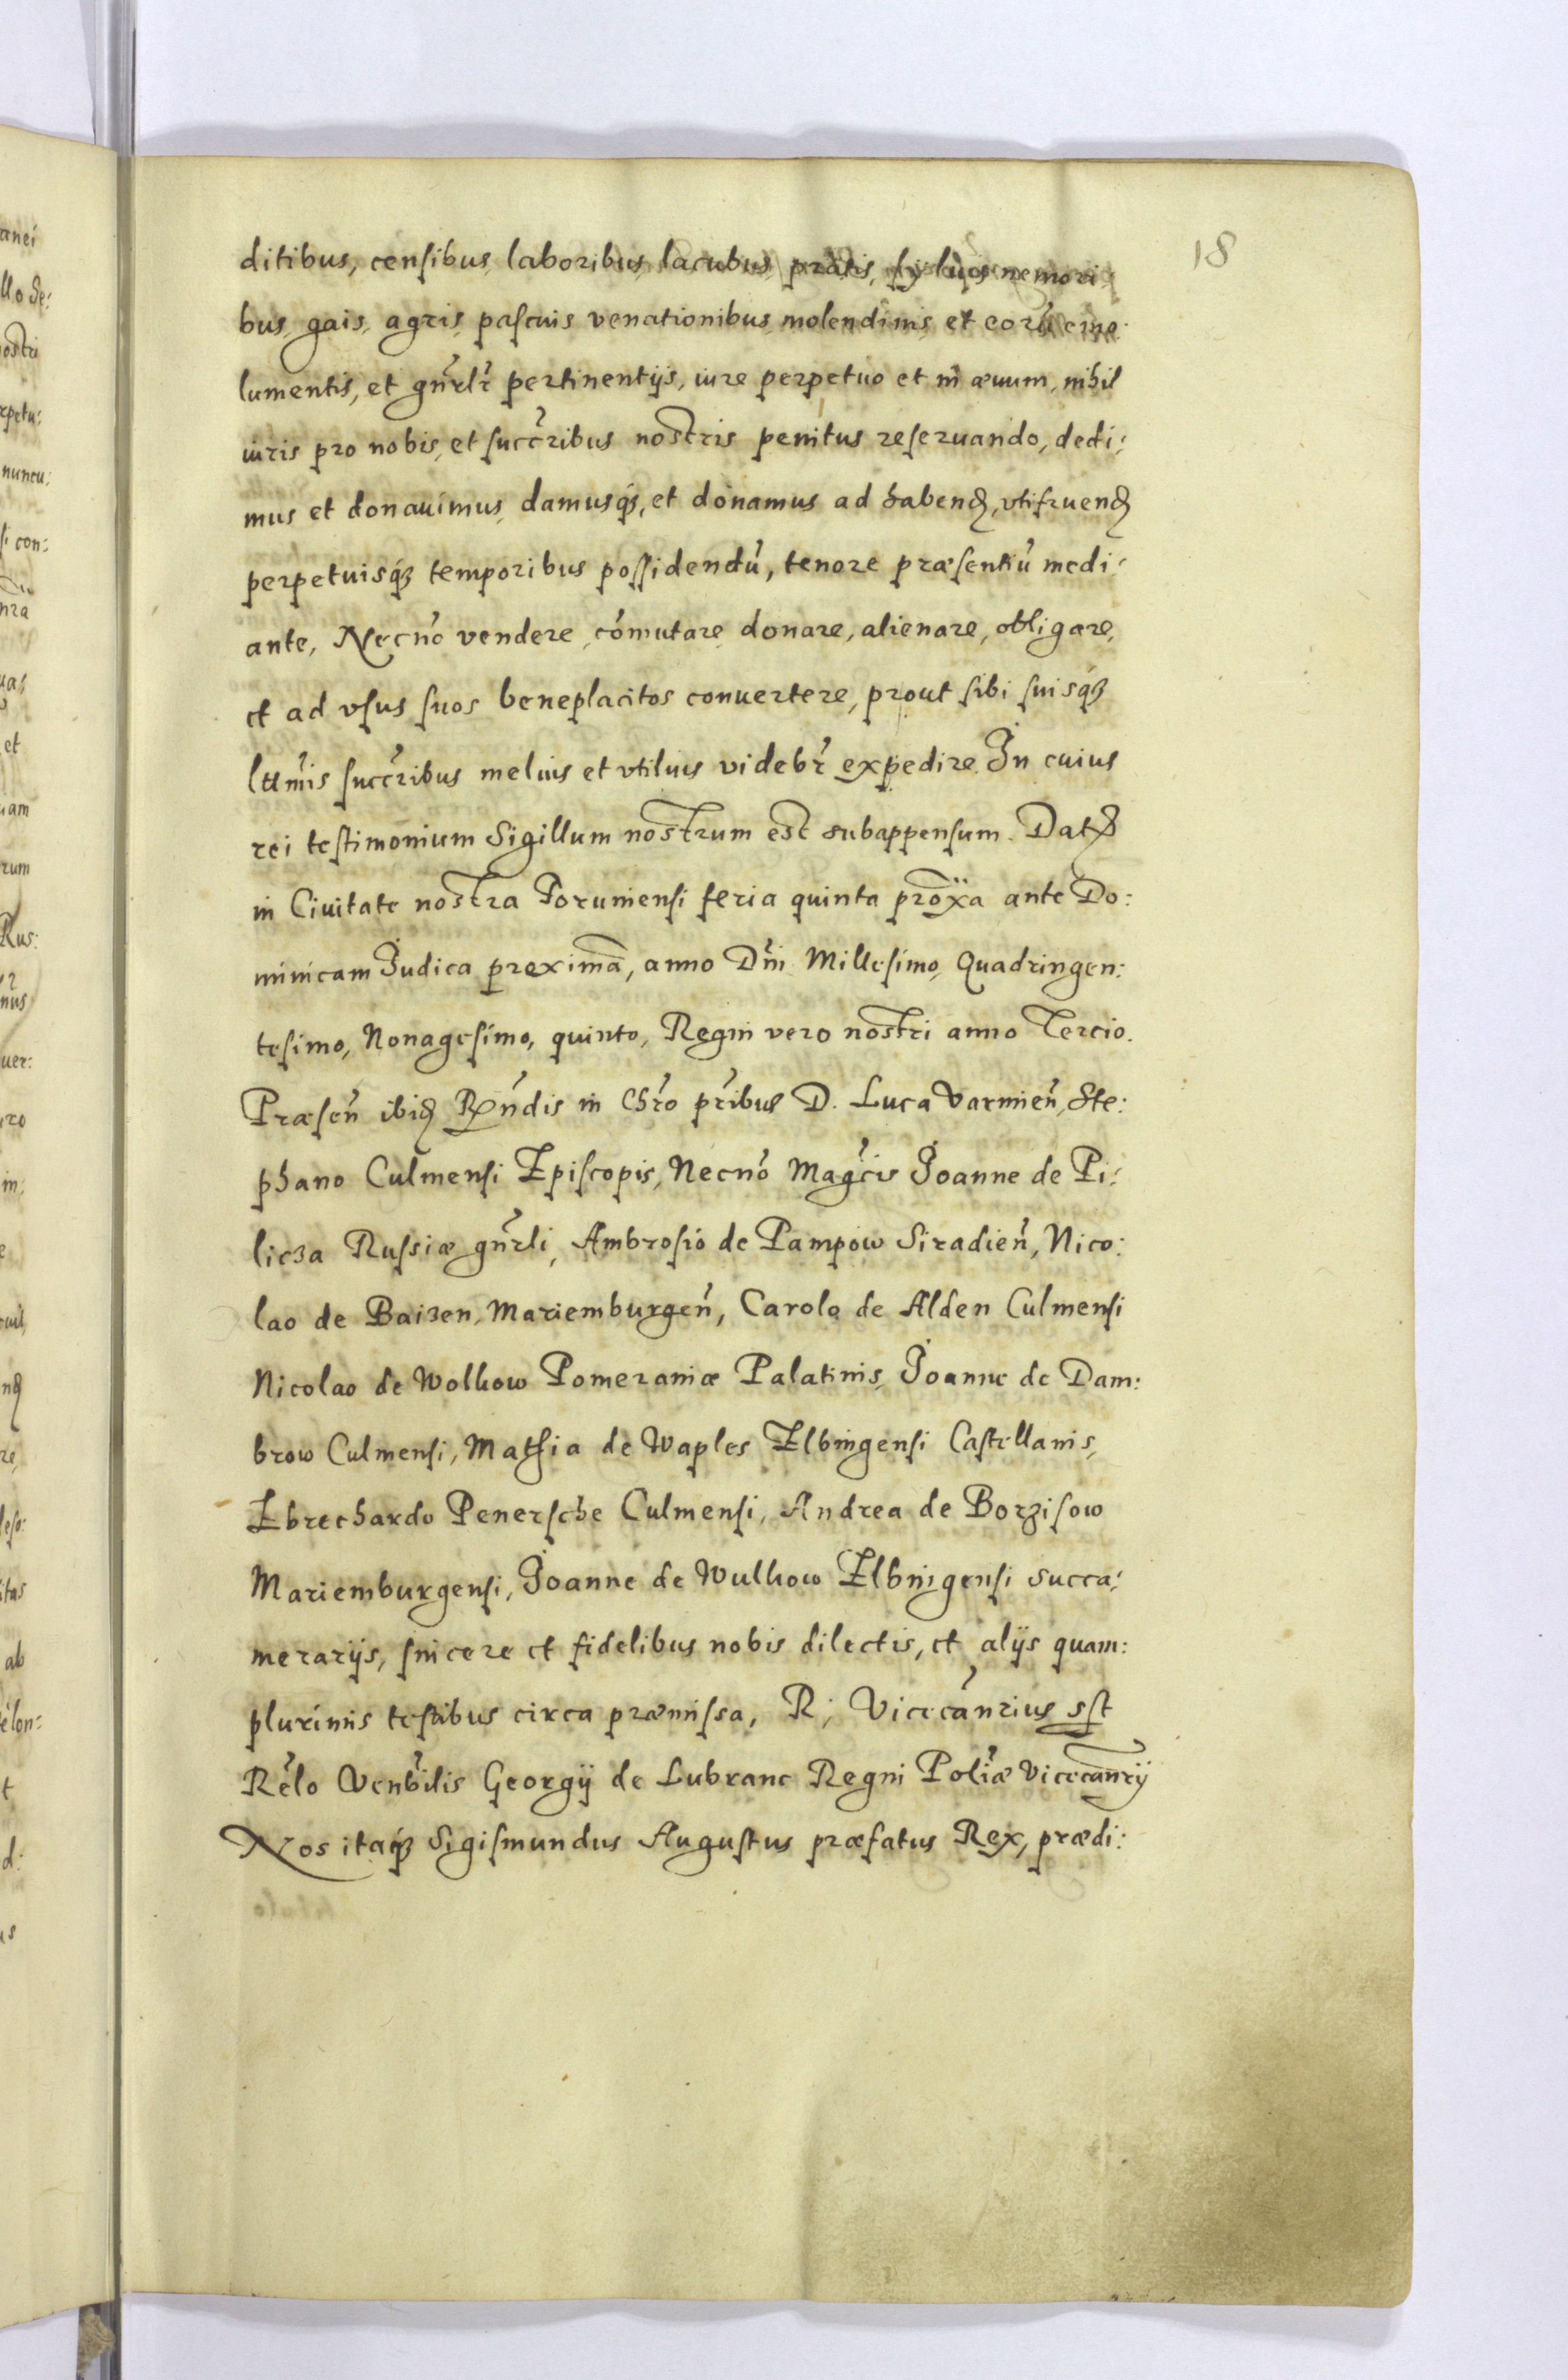 18
ditibus, censibus, laboribus, lacubus, pratis, syluis nemori:
bus, gais, agris, pascuis venationibus, molendinis, et eorũ emo:
lumentis, et gñrlr pertinentijs, iure perpetuo et in æuum, nihil
iuris pro nobis, et succribus nostris penitus reseruando, dedi:
mus et donauimus, damusq́ꝫ, et donamus ad habend, vtifruend
perpetuisq́ꝫ temporibus possidendũ, tenore præsentiũ medi:
ante, Necnõ vendere, cõmutare, donare, alienare, obligare,
et ad vsus suos beneplacitos conuertere, prout sibi suisq́ꝫ
lttmis succribus melius et vtilius videbr expedire. In cuius
rei testimonium Sigillum nostrum est subappensum. Dat
in Ciuitate nostra Toruniensi feria quinta proxa ante Do:
minicam Judica proximã, anno Dñi Millesimo, Quadringen:
tesimo, Nonagesimo, quinto, Regni vero nostri anno Tercio.
Præseñ ibid Rñdis in Chro pribus D. Luca Varmieñ, Ste:
phano Culmensi Episcopis, Necnõ Magcis Joanne de Pi:
licza Russiæ gñrli, Ambrosio de Pampow Siradieñ, Nico:
lao de Baizen, Mariemburgeñ, Carolo de Alden Culmensi
Nicolao de Wolkow Pomeraniæ Palatinis, Joanne de Dam:
brow Culmensi, Mathia de Waples Elbingensi Castellanis,
Ebrechardo Penersche Culmensi, Andrea de Borzisow
Mariemburgensi, Joanne de Wulkow Elbingensi succa:
merarijs, sincere et fidelibus nobis dilectis, et alijs quam:
plurimis testibus circa præmissa, R; Vicecanrius sst
Relo Venbilis Georgij de Lubranc Regni Poliæ Vicecanrij
Nos itaq́ꝫ Sigismundus Augustus præfatus Rex, prædi: